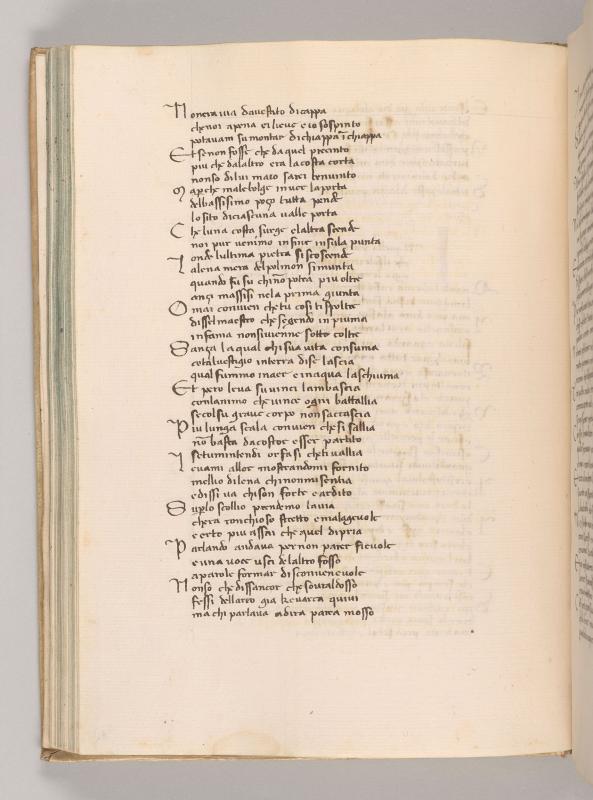 Non era via davestito di cappa
che noi apena ei lieve e io sospinto
potavam su montar di chiappa ĩ chiappa
Et se non fosse che da quel precinto
piu che dalaltro era la costa corta
non so di lui ma io sarei ben vinto
Ma perche malebolge inver la porta
del bassisimo poço tutta pende
lo sito di ciascuna valle porta
Che luna costa surge el altra scende
noi pur venimo in fine in su la punta
onde lultima pietra si scoscende
La lena mera del polmon si munta
quando fu su chi nõ potea piu oltre
ançi massisi nela prima giunta
Omai convien che tu cosi ti spoltre
disse l maestro che segendo in piuma
in fama non si vienne sotto coltre
Sança la qual chi sua vita consuma
cotal vestigio in terra di se lascia
qual fummo in aer e in aqua la schiuma
Et pero leva su vinci lambascia
con lanimo che vince ogni battallia
se col su grave corpo non saccascia
Piu lunga scala convien che si sallia
nõ basta da costor esser partito
se tu mintendi or fa si che ti vallia
Levami allor mostrandomi fornito
mellio di lena chi non mi sentia
e dissi va chi son forte e ardito
Su p lo scollio prendemo la via
chera ronchioso stretto e malagevole
e erto piu assai che quel di pria
Parlando andava per non parer fievole
e una voce usci de laltro fosso
a parole formar disconvenevole
Non so che disse ancor che sovra l dosso
fossi dell arco gia che varca quivi
ma chi parlava ad ira parea mosso